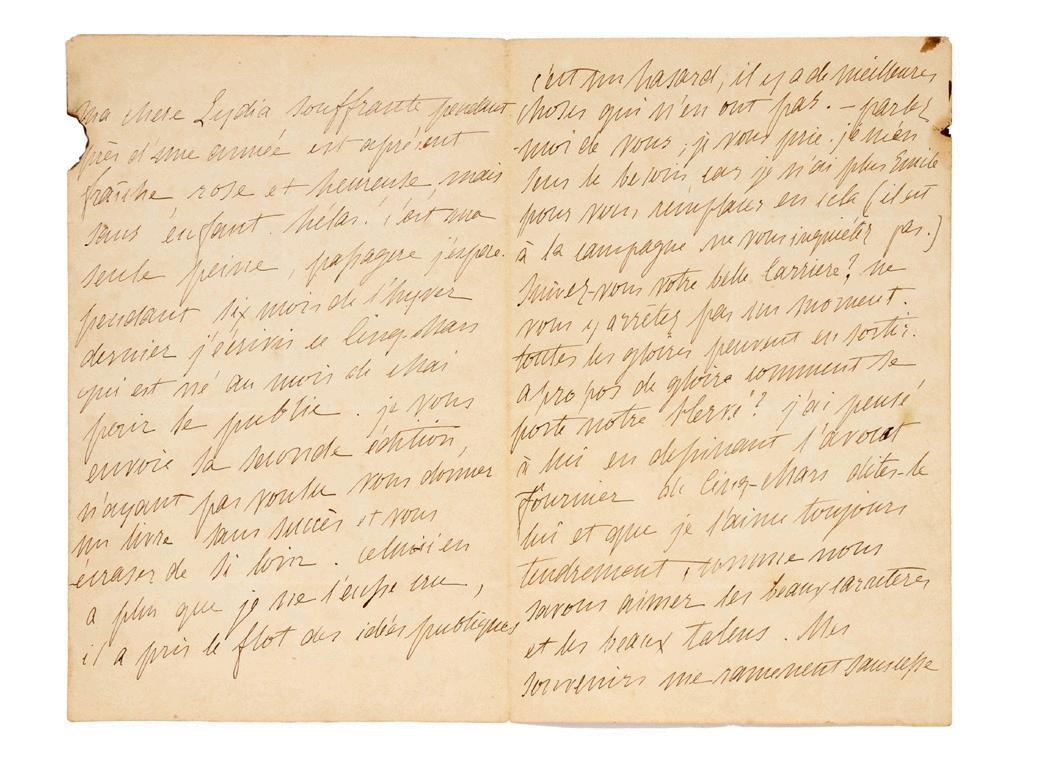 ma chere Lydia souffrante pendant
près d'une année est aprésent
fraîche rose et heureuse, mais
sans enfant. hélas! c'est ma
seule peine, passagere j'espere.
pendant six mois de l'hyver
dernier j'écrivis ce Cinq-Mars
qui est né au mois de Mai
pour le public. je vous
envoie sa seconde édition,
n'ayant pas voulu vous donner
un livre sans succès et vous
écraser de si loin. celui ci en
a plus que je ne l'eusse cru,
il a pris le flot des idées publiques
c'est un hasard, il y a de meilleures
choses qui n'en ont pas. - parlez
-moi de vous, je vous prie. j'en ai
bien le besoin, car je n'ai plus Emile
pour vous remplacer en cela (il est
à la campagne ne vous inquiétez pas.)
Suivez-vous votre belle Carriere? ne
vous y arretez pas un moment.
toutes les gloires peuvent en sortir.
apropos de gloire comment se
porte notre Hervé? j'ai pensé
à lui en dessinant l'avocat
Fournier de Cinq-Mars dites-le
lui et que je l'aime toujours
tendrement, comme nous
savons aimer les beaux caracteres
et les beaux talens. Mes
souvenirs me ramenent sans cesse